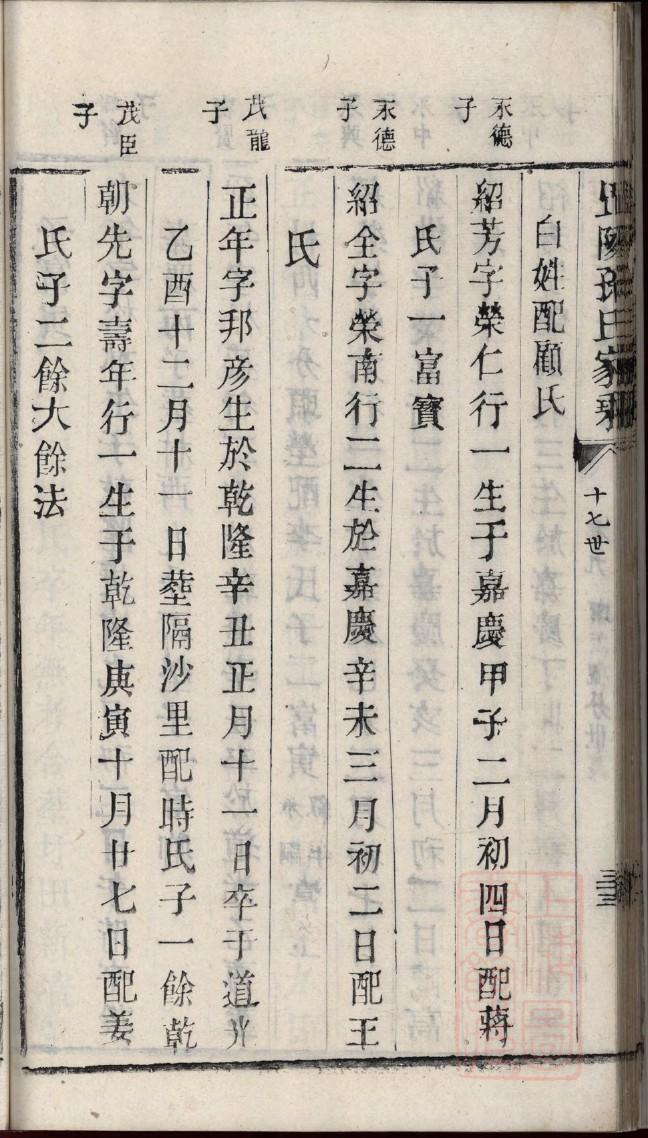 孫氏家乘
十七世
白姓配顧氏
永德子
紹芳字榮仁行一生于嘉慶甲子二月初四日配蔣
氏子一富寳
永德子
紹全字榮南行二生於嘉慶辛未三月初二日配王
氏
茂龍子
正年字邦彦生於乾隆辛丑正月十一日卒于道光
乙酉十二月十一日塟隔沙里配時氏子一餘乾
茂臣子
朝先字壽年行一生于乾隆庚寅十月廿七日配姜
氏子二餘大餘法